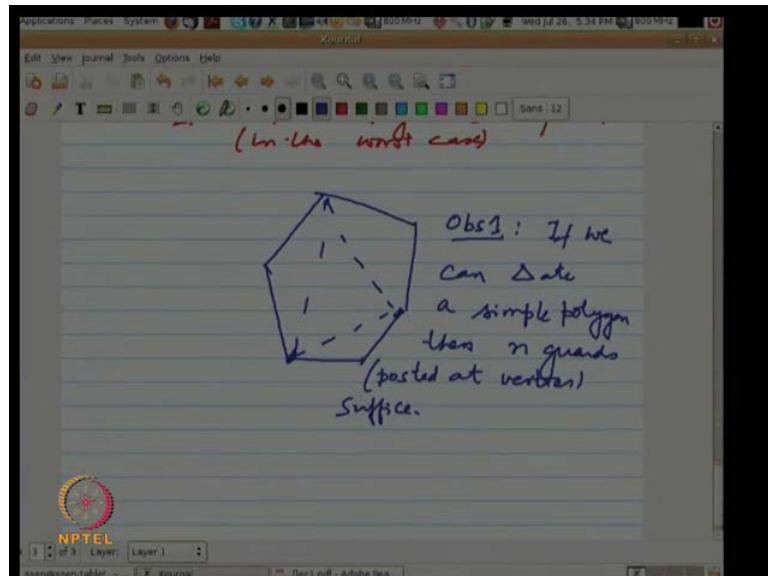 Applications Places System 800 MHz Wed Jul 28, 5:34 PM 800 MHz
Xournal
Edit View Journal Tools Options Help
Sans 12
(in the worst case)
Obs1 : If we
can Δate
a simple polygon
then n guards
(posted at vertices)
suffice.
NPTEL
3 of 3 Layer: Layer 1
Xournal